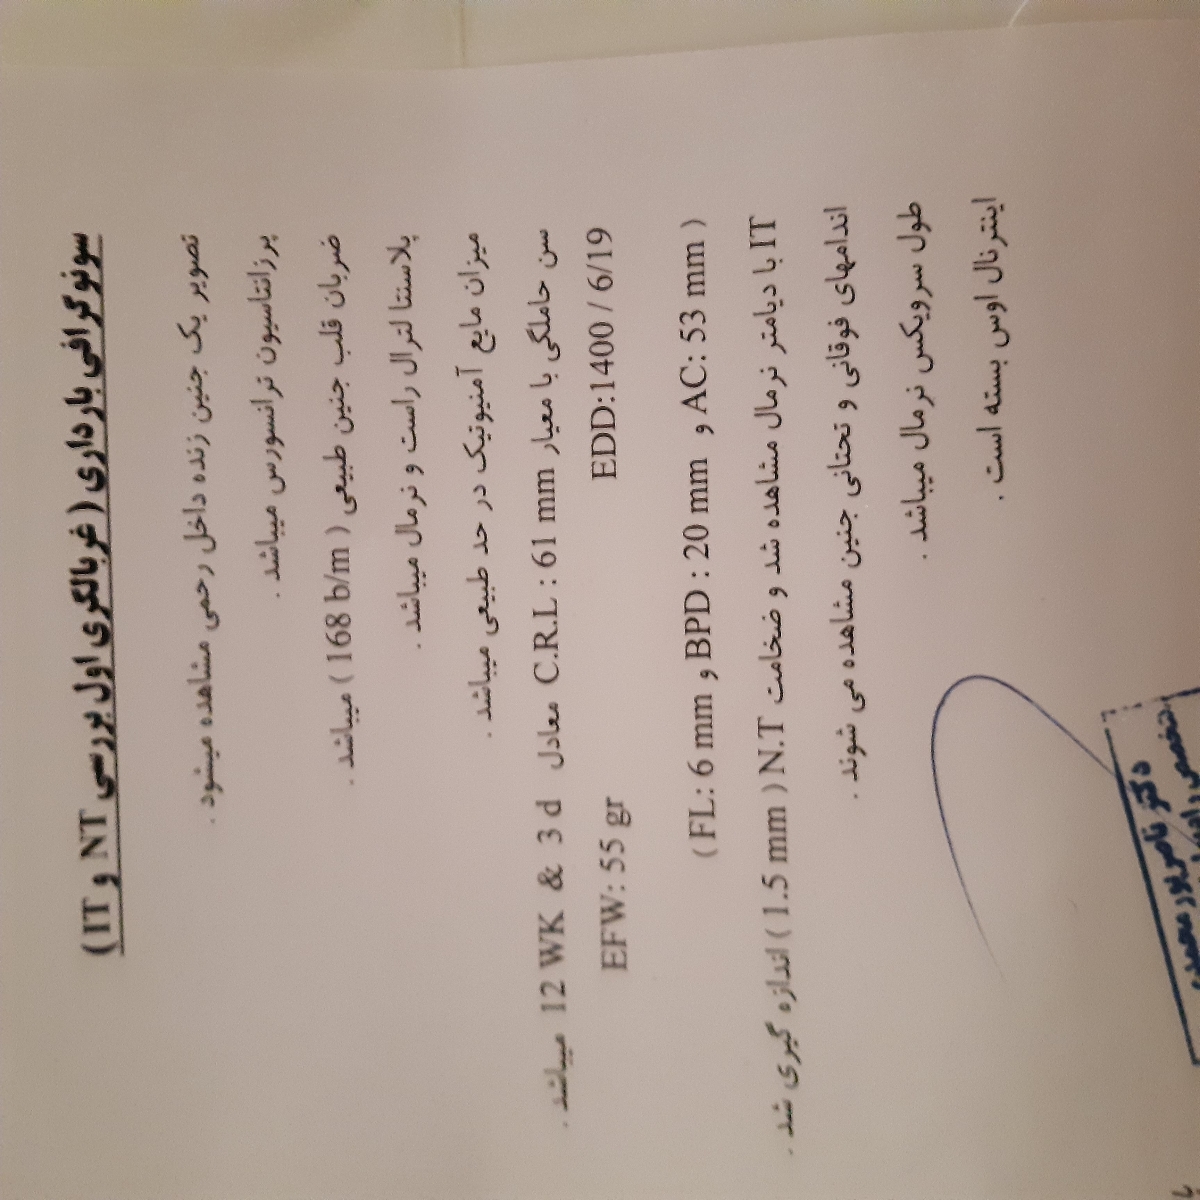 سونوگرافی بارداری ( غربالگری اول بررسی NT و IT )
تصویر یک جنین زنده داخل رحمی مشاهده میشود .
پرزانتاسیون ترانسورس میباشد .
ضربان قلب جنین طبیعی ( 168 b/m ) میباشد .
پلاسنتا لترال راست و نرمال میباشد .
میزان مایع آمنیوتیک در حد طبیعی میباشد .
سن حاملگی با معیار C.R.L : 61 mm معادل 12 WK & 3 d میباشد .
EDD:1400 / 6/19 EFW: 55 gr
( FL: 6 mm و BPD : 20 mm و AC: 53 mm )
IT با دیامتر نرمال مشاهده شد و ضخامت N.T ( 1.5 mm ) اندازه گیری شد .
اندامهای فوقانی و تحتانی جنین مشاهده می شوند .
طول سرویکس نرمال میباشد .
اینترنال اوس بسته است .
دکتر ناصر پور محمد